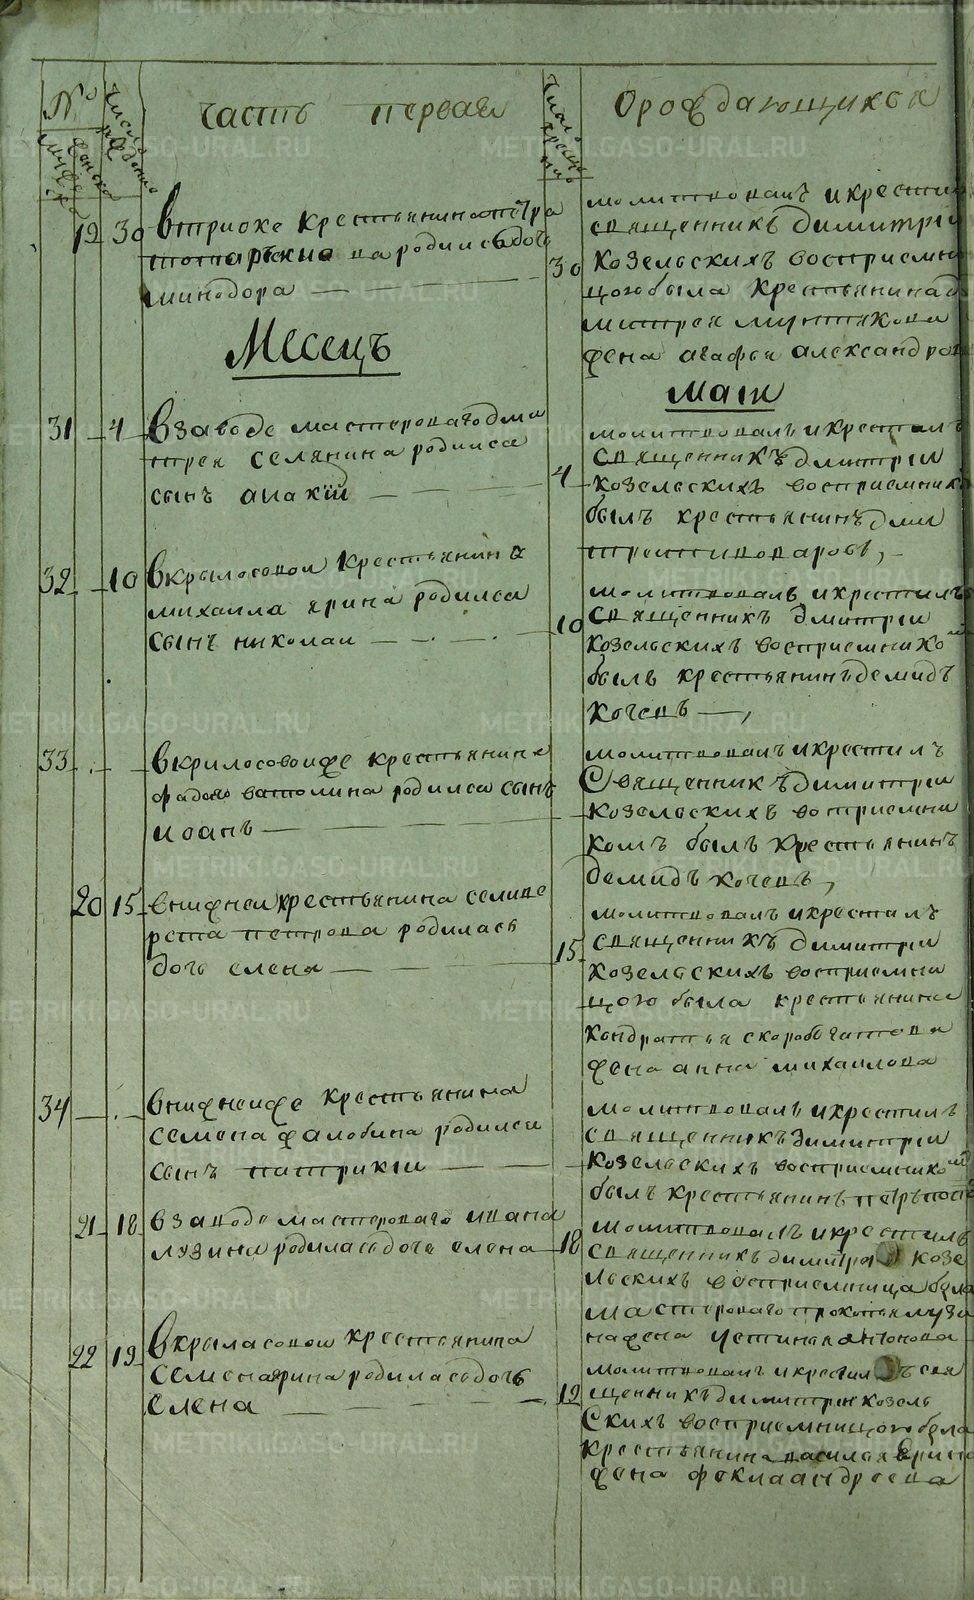 №
мужеска
женска
число рождения
часть первая
число крещения
орождающихся
19 30 втриоке крестьянина петра
родилась дочь
минодора
30
молитвовалъ икрестил
священникъ димитрии
козельскихъ восприемни
цою была крестьянина д
митрея
жена агафья александров
Месецъ
маи
31 4 взаводе мастероваго дми
трея селянина родился
сынъ анакїи
4
молитвовалъ икрестилъ
священникъ димитрии
козельскихъ восприемник
былъ крестьянинъ дми
трей пивоваровъ,
32 10 вкрылосовои крестьянина
михаила ярина родился
сынъ николаи
10
молитвовалъ икрестилъ
священникъ димитрии
козельскихъ восприемникомъ
былъ крестьянинъ демидъ
кочевъ
33 вкрилосовоиже крестьянина
фадея ватолина родился сынъ
иоанъ
молитвовалъ икрестилъ
священникъ димитрии
козельскихъ восприемни
комъ былъ крестьянинъ
демидъ кочевъ,
20 15 внижнеи крестьянина селиве
рста петрова родилась
дочь елена
15
молитвовалъ икрестилъ
священникъ димитрии
козельскихъ восприемни
цою была крестьянина
кондратья скоробогатова
жена анна михаилова
34 внижнеиже крестьянина
семена жалобина родился
сынъ патрикіи
молитвовалъ икрестилъ
священникъ димитрии
козельскихъ восприемникомъ
былъ крестьянинъ петръ попо
21 18 взаводе мастероваго ивана
лузина родилась дочь елена
18
молитвовалъ икрестилъ
священникъ димитреи козе
льскихъ восприемница была
мастероваго прокопья лузи
на жена устинья антонова
22 19 вкрыласовои крестьянина
семена ярина родилась дочь
елена
19
молитвовалъ икрестилъ свя
щенникъ димитреи козель
скихъ восприемницою была
крестьянина василья ярина
жена фекла андреева
METRIKI.GASO-URAL.RU